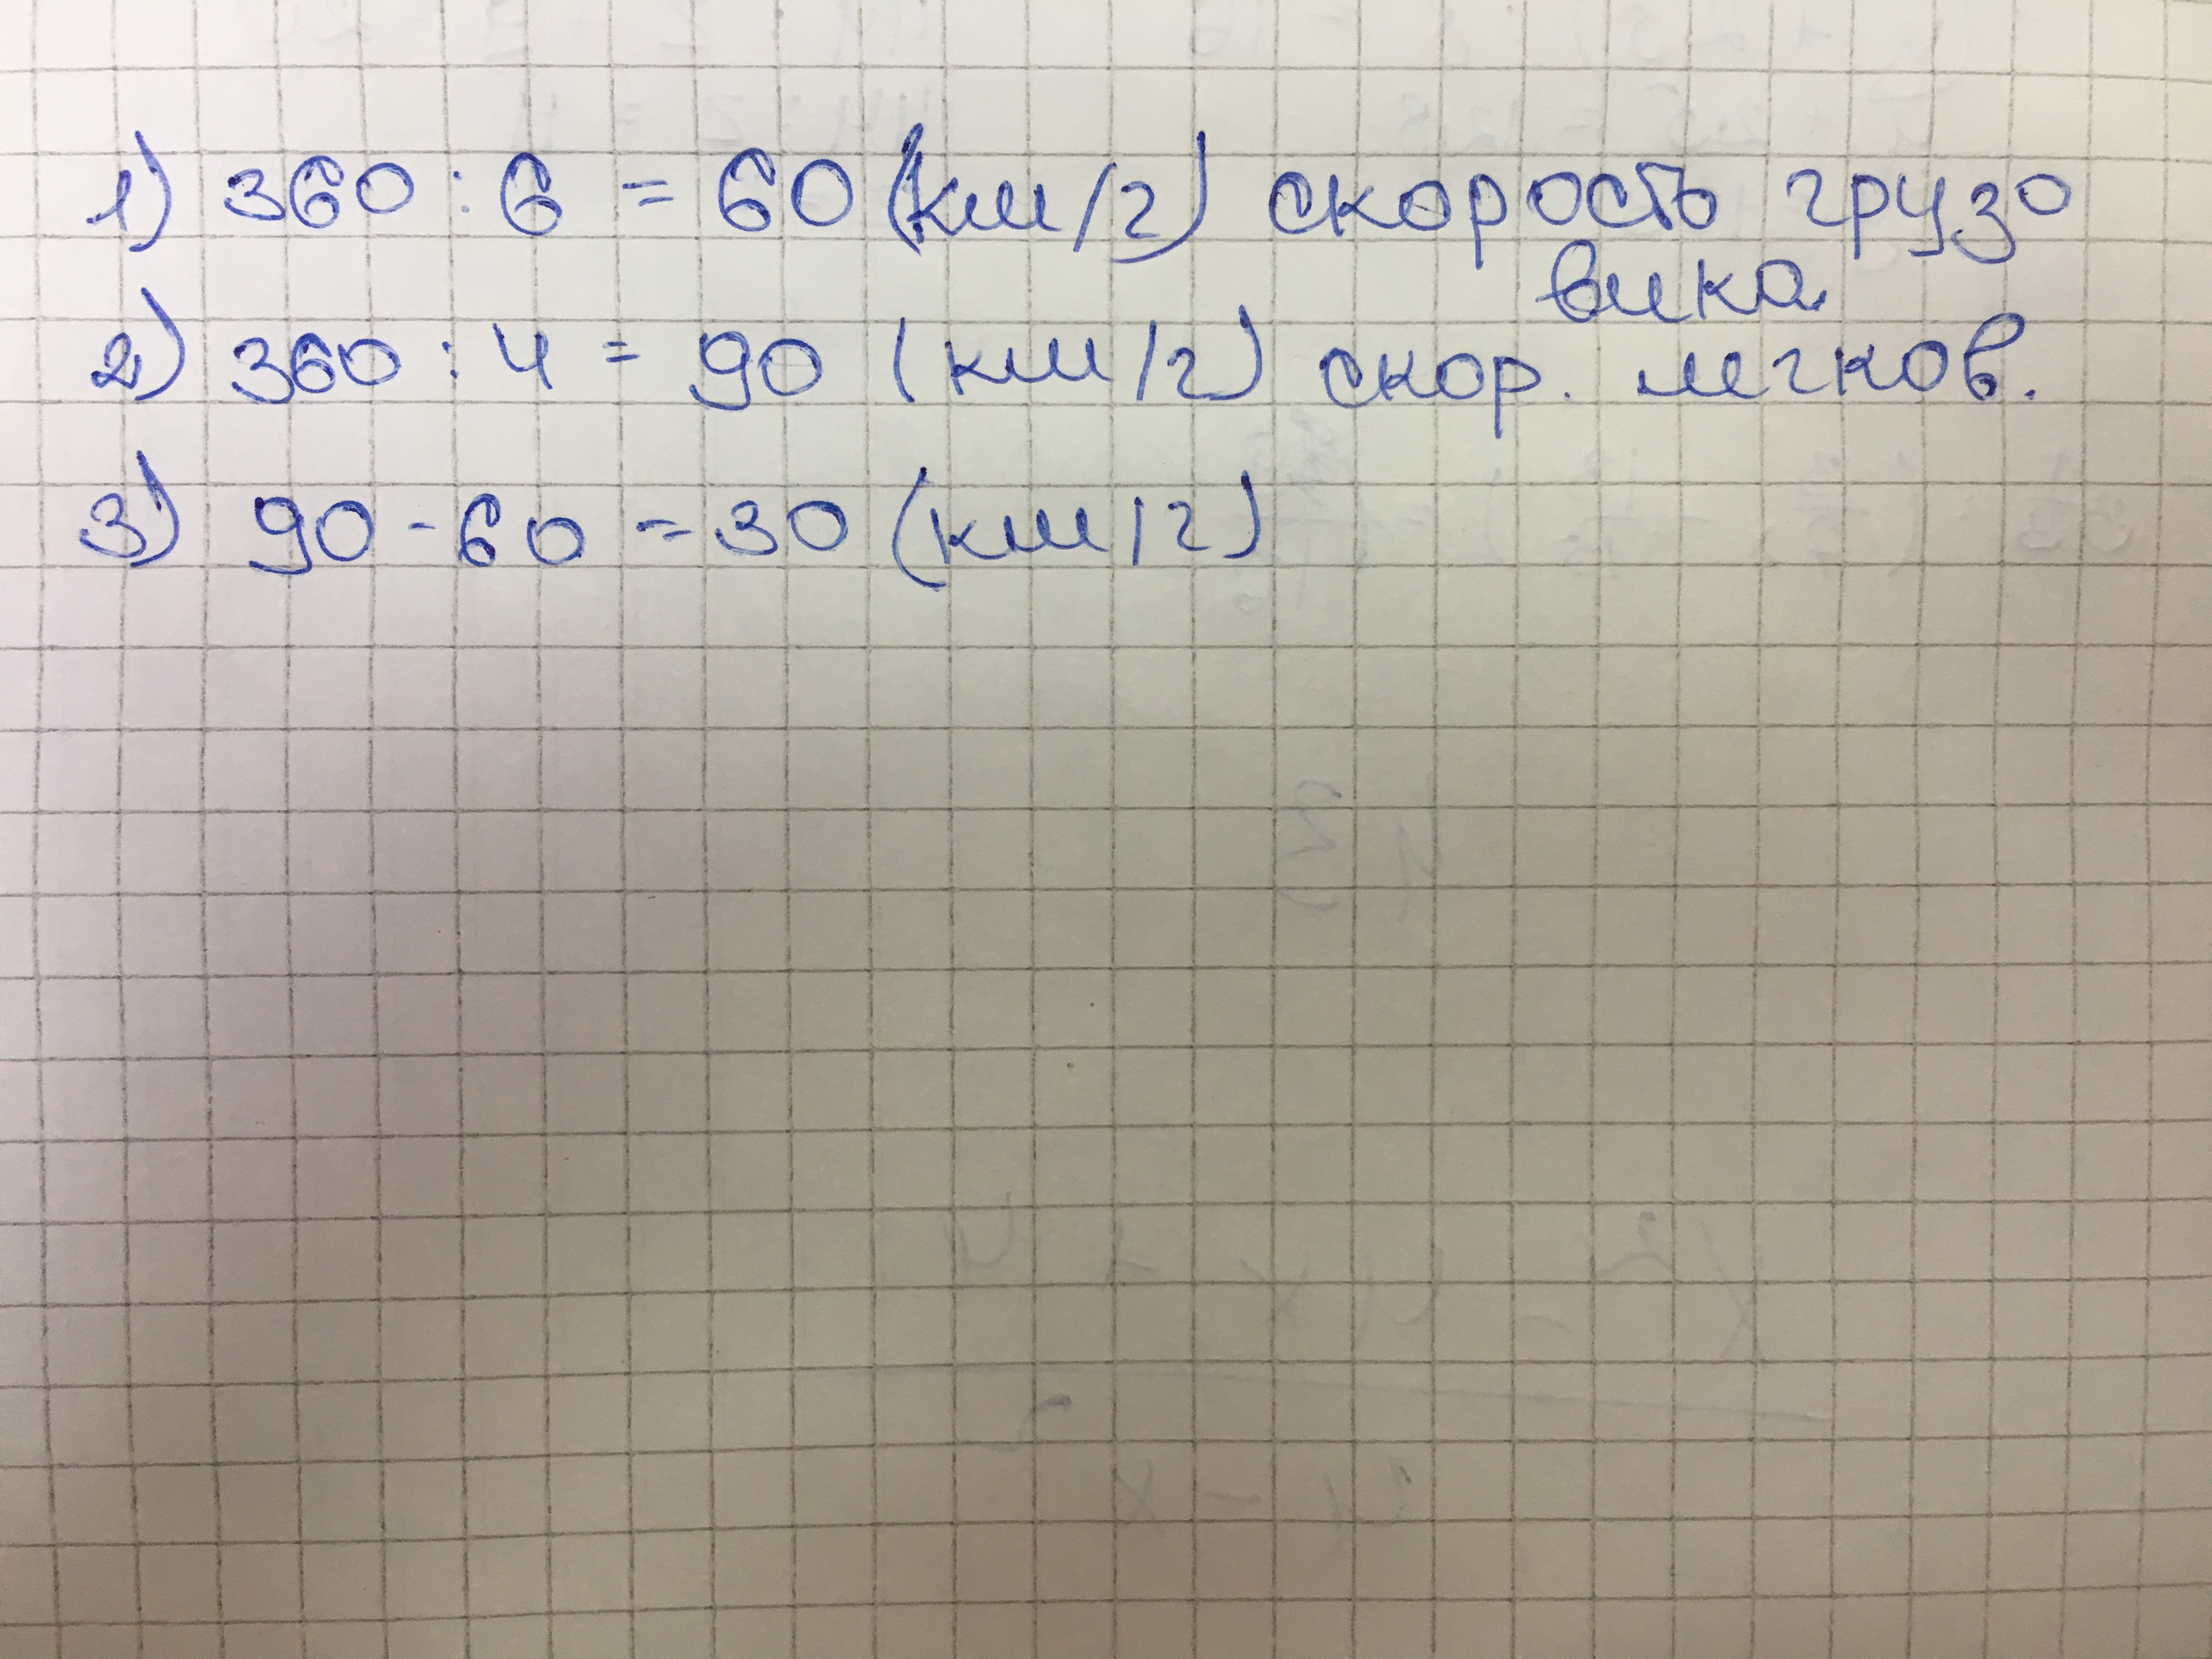 1) 360 : 6 = 60 (км/г) скорость грузо
вика
2) 360 : 4 = 90 (км/г) скор. легков.
3) 90 - 60 = 30 (км/г)